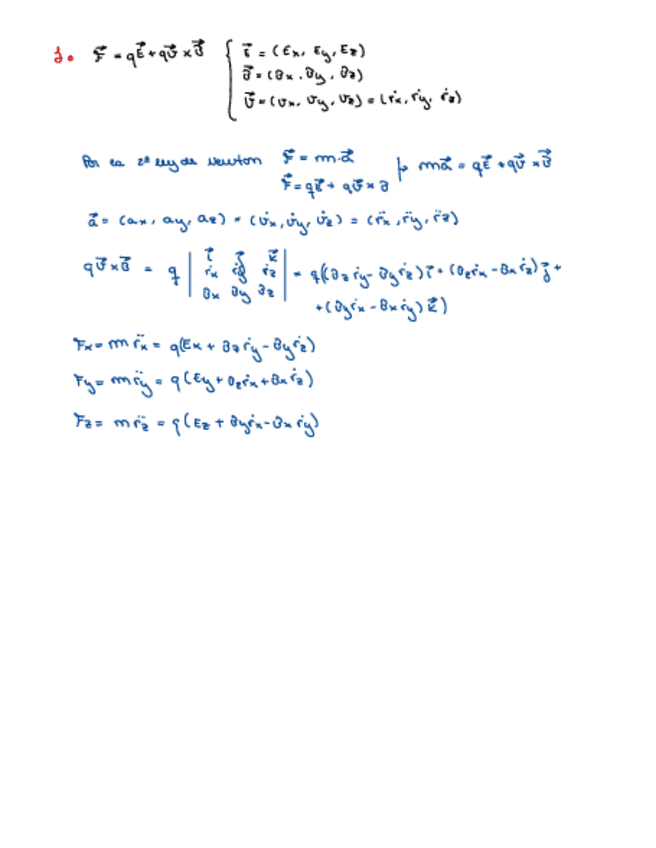 1. F⃗ = qE⃗ + qv⃗ × B⃗ { E⃗ = (Ex, Ey, Ez)
B⃗ = (Bx, By, Bz)
v⃗ = (vx, vy, vz) = (ṙx, ṙy, ṙz)
Por la 2ª ley de Newton F⃗ = m·a⃗ |→ ma⃗ = qE⃗ + qv⃗ × B⃗
F⃗ = qE⃗ + qv⃗ × B
a⃗ = (ax, ay, az) = (v̇x, v̇y, v̇z) = (r̈x, r̈y, r̈z)
qv⃗ × B⃗ = q | i⃗ j⃗ k⃗ |
| ṙx ṙy ṙz | = q((Bzṙy - Byṙz)i⃗ + (Bzṙx - Bxṙz)j⃗ +
| Bx By Bz |
+ (Byṙx - Bxṙy)k⃗)
Fx = m r̈x = q(Ex + Bzṙy - Byṙz)
Fy = m r̈y = q(Ey + Bzṙx + Bxṙz)
Fz = m r̈z = q(Ez + Byṙx - Bxṙy)